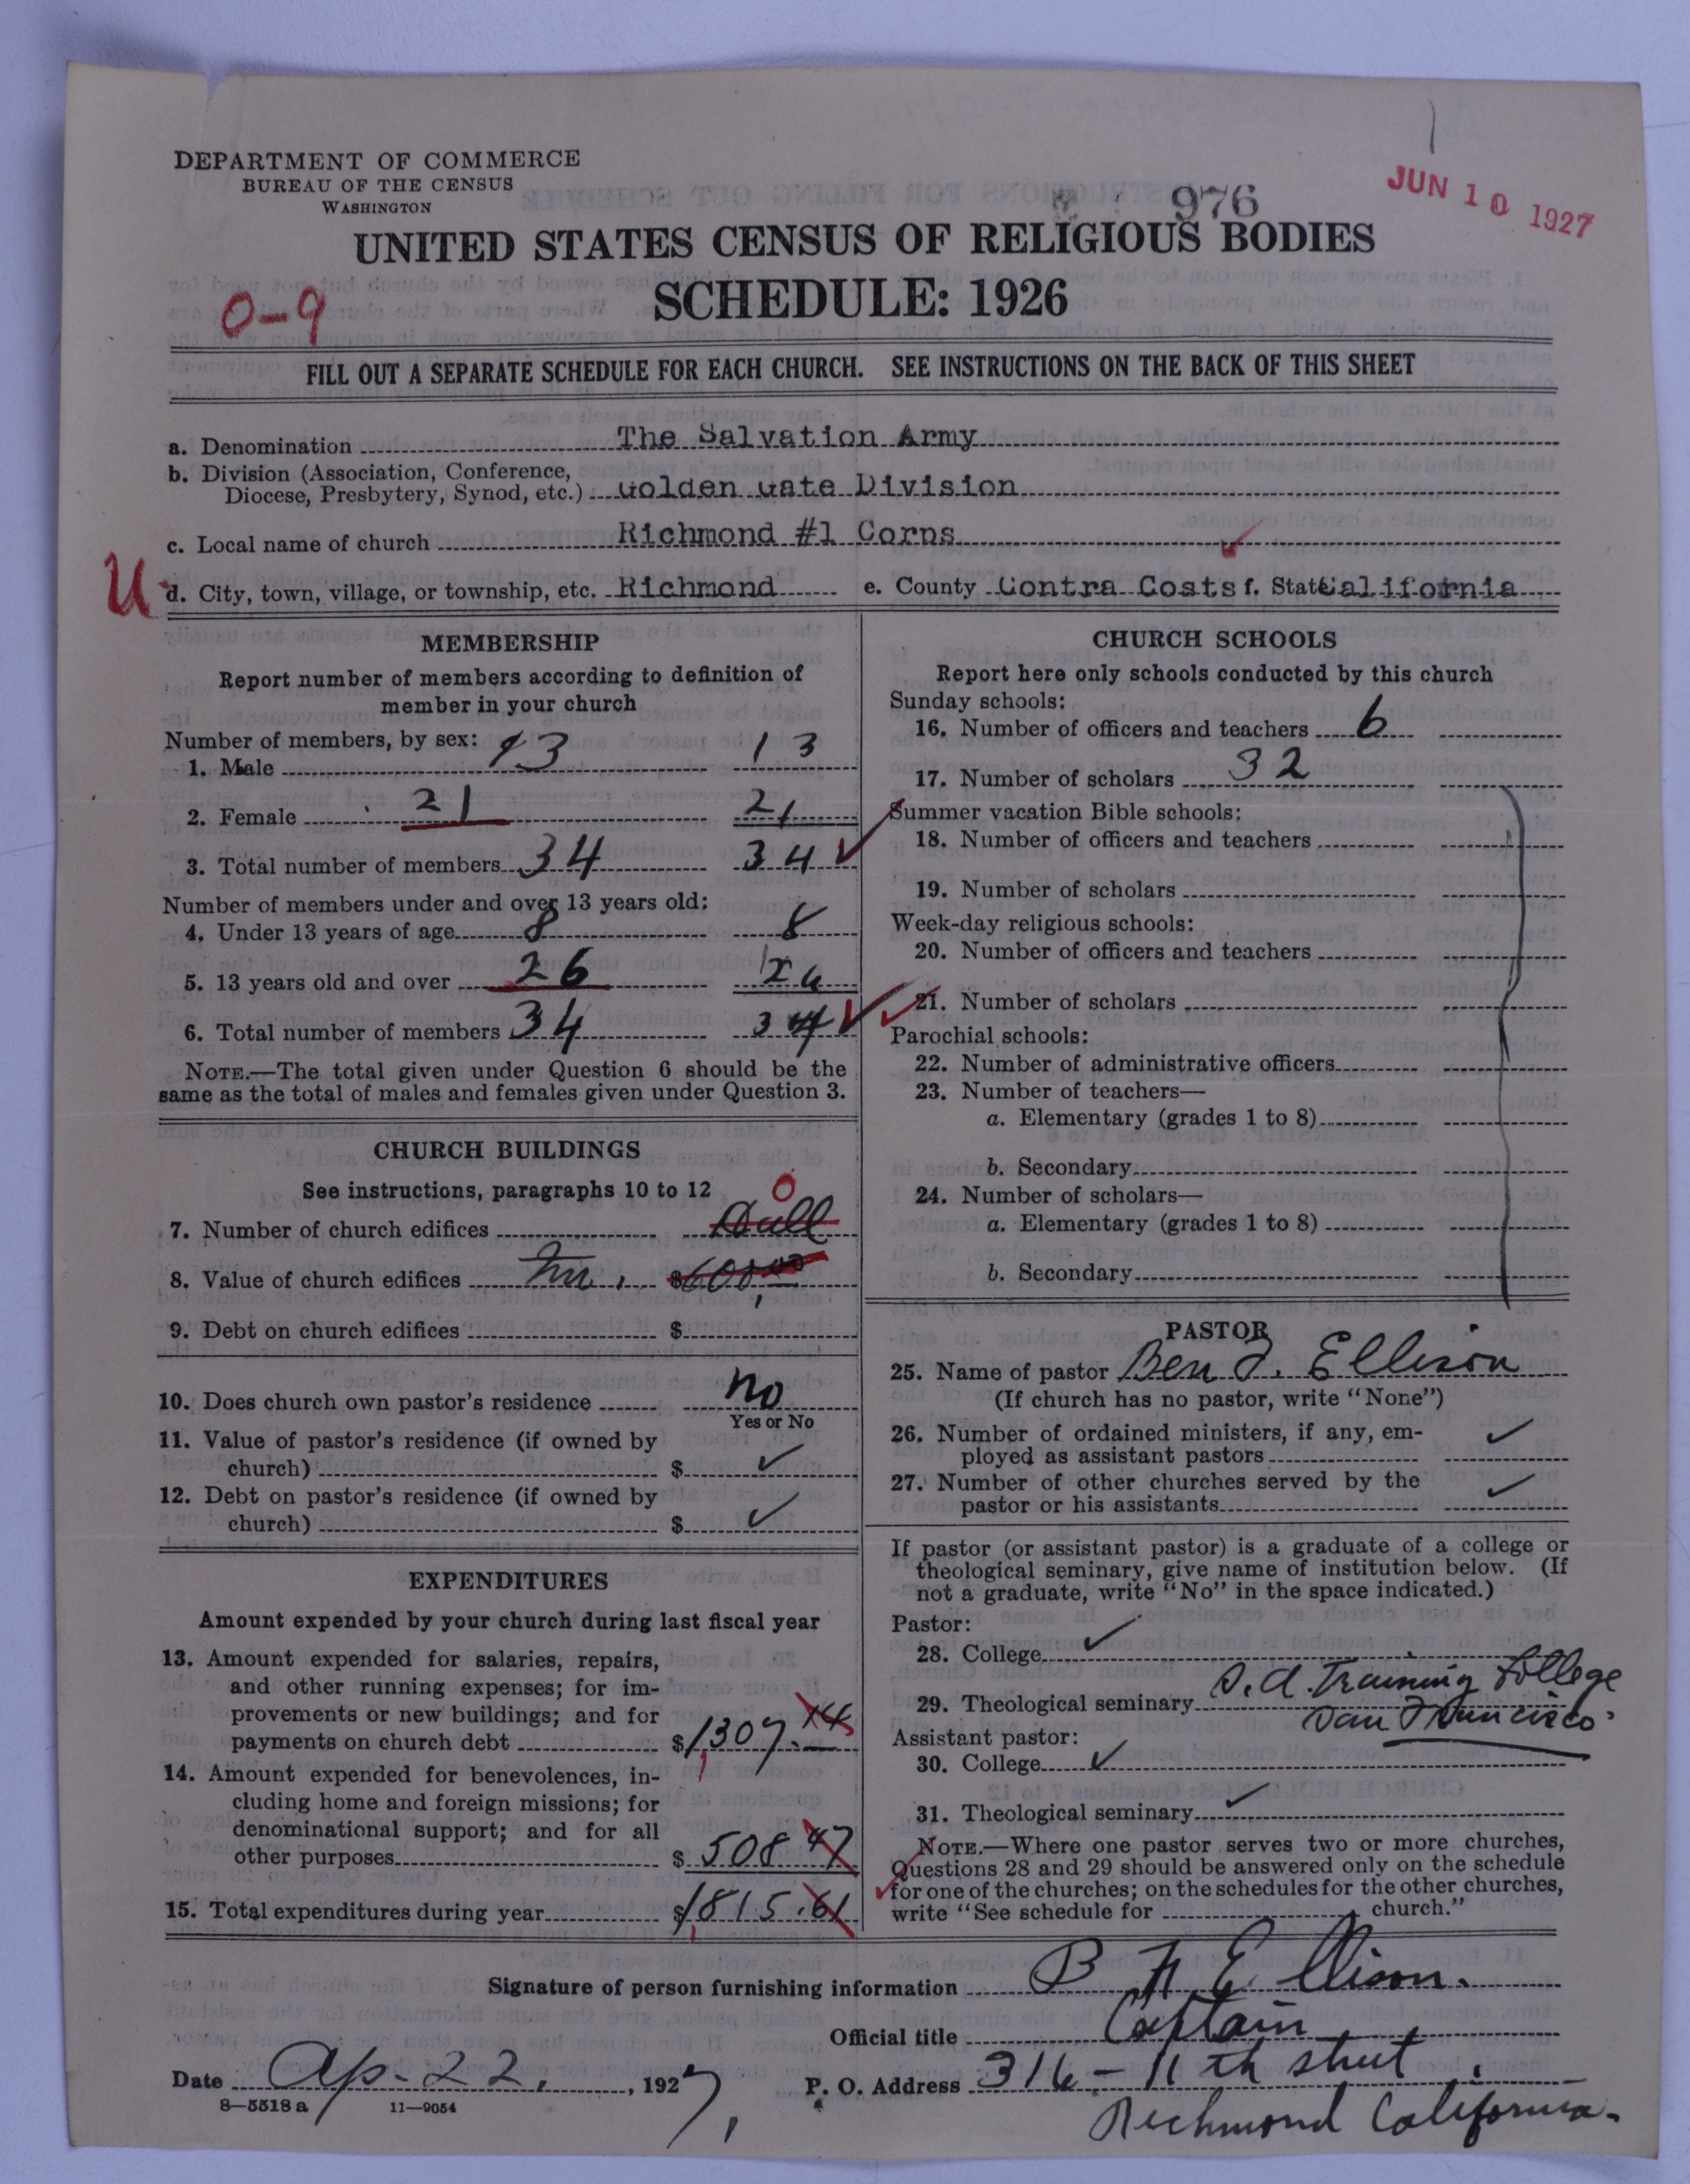 DEPARTMENT OF COMMERCE
BUREAU OF THE CENSUS
WASHINGTON
976
JUN 10 1927
UNITED STATES CENSUS OF RELIGIOUS BODIES
SCHEDULE: 1926
0-9
FILL OUT A SEPARATE SCHEDULE FOR EACH CHURCH. SEE INSTRUCTIONS ON THE BACK OF THIS SHEET
a. Denomination The Salvation Army
b. Division (Association, Conference,
Diocese, Presbytery, Synod, etc.) Golden Gate Division
c. Local name of church Richmond #1 Corps
U d. City, town, village, or township, etc. Richmond e. County Contra Costs f. State California
MEMBERSHIP
Report number of members according to definition of
member in your church
Number of members, by sex:
1. Male 13 13
2. Female 21 21
3. Total number of members 34 34
Number of members under and over 13 years old:
4. Under 13 years of age 8 8
5. 13 years old and over 26 26
6. Total number of members 34 34
NOTE.—The total given under Question 6 should be the
same as the total of males and females given under Question 3.
CHURCH BUILDINGS
See instructions, paragraphs 10 to 12
7. Number of church edifices Hall 0
8. Value of church edifices $600.00
9. Debt on church edifices $
10. Does church own pastor's residence No
Yes or No
11. Value of pastor's residence (if owned by
church) $
12. Debt on pastor's residence (if owned by
church) $
EXPENDITURES
Amount expended by your church during last fiscal year
13. Amount expended for salaries, repairs,
and other running expenses; for im-
provements or new buildings; and for
payments on church debt $1,307.14
14. Amount expended for benevolences, in-
cluding home and foreign missions; for
denominational support; and for all
other purposes $508 47
15. Total expenditures during year $1,815.61
CHURCH SCHOOLS
Report here only schools conducted by this church
Sunday schools:
16. Number of officers and teachers 6
17. Number of scholars 32
Summer vacation Bible schools:
18. Number of officers and teachers
19. Number of scholars
Week-day religious schools:
20. Number of officers and teachers
21. Number of scholars
Parochial schools:
22. Number of administrative officers
23. Number of teachers—
a. Elementary (grades 1 to 8)
b. Secondary
24. Number of scholars—
a. Elementary (grades 1 to 8)
b. Secondary
PASTOR
25. Name of pastor Ben F. Ellison
(If church has no pastor, write "None")
26. Number of ordained ministers, if any, em-
ployed as assistant pastors
27. Number of other churches served by the
pastor or his assistants
If pastor (or assistant pastor) is a graduate of a college or
theological seminary, give name of institution below. (If
not a graduate, write "No" in the space indicated.)
Pastor:
28. College
29. Theological seminary S.A. Training College
San Francisco
Assistant pastor:
30. College
31. Theological seminary
NOTE.—Where one pastor serves two or more churches,
Questions 28 and 29 should be answered only on the schedule
for one of the churches; on the schedules for the other churches,
write "See schedule for church."
Signature of person furnishing information B F Ellison.
Official title Captain
Date Ap. 22, 1927, P. O. Address 316 - 11th street.
8—5518 a 11—9054
Richmond California.